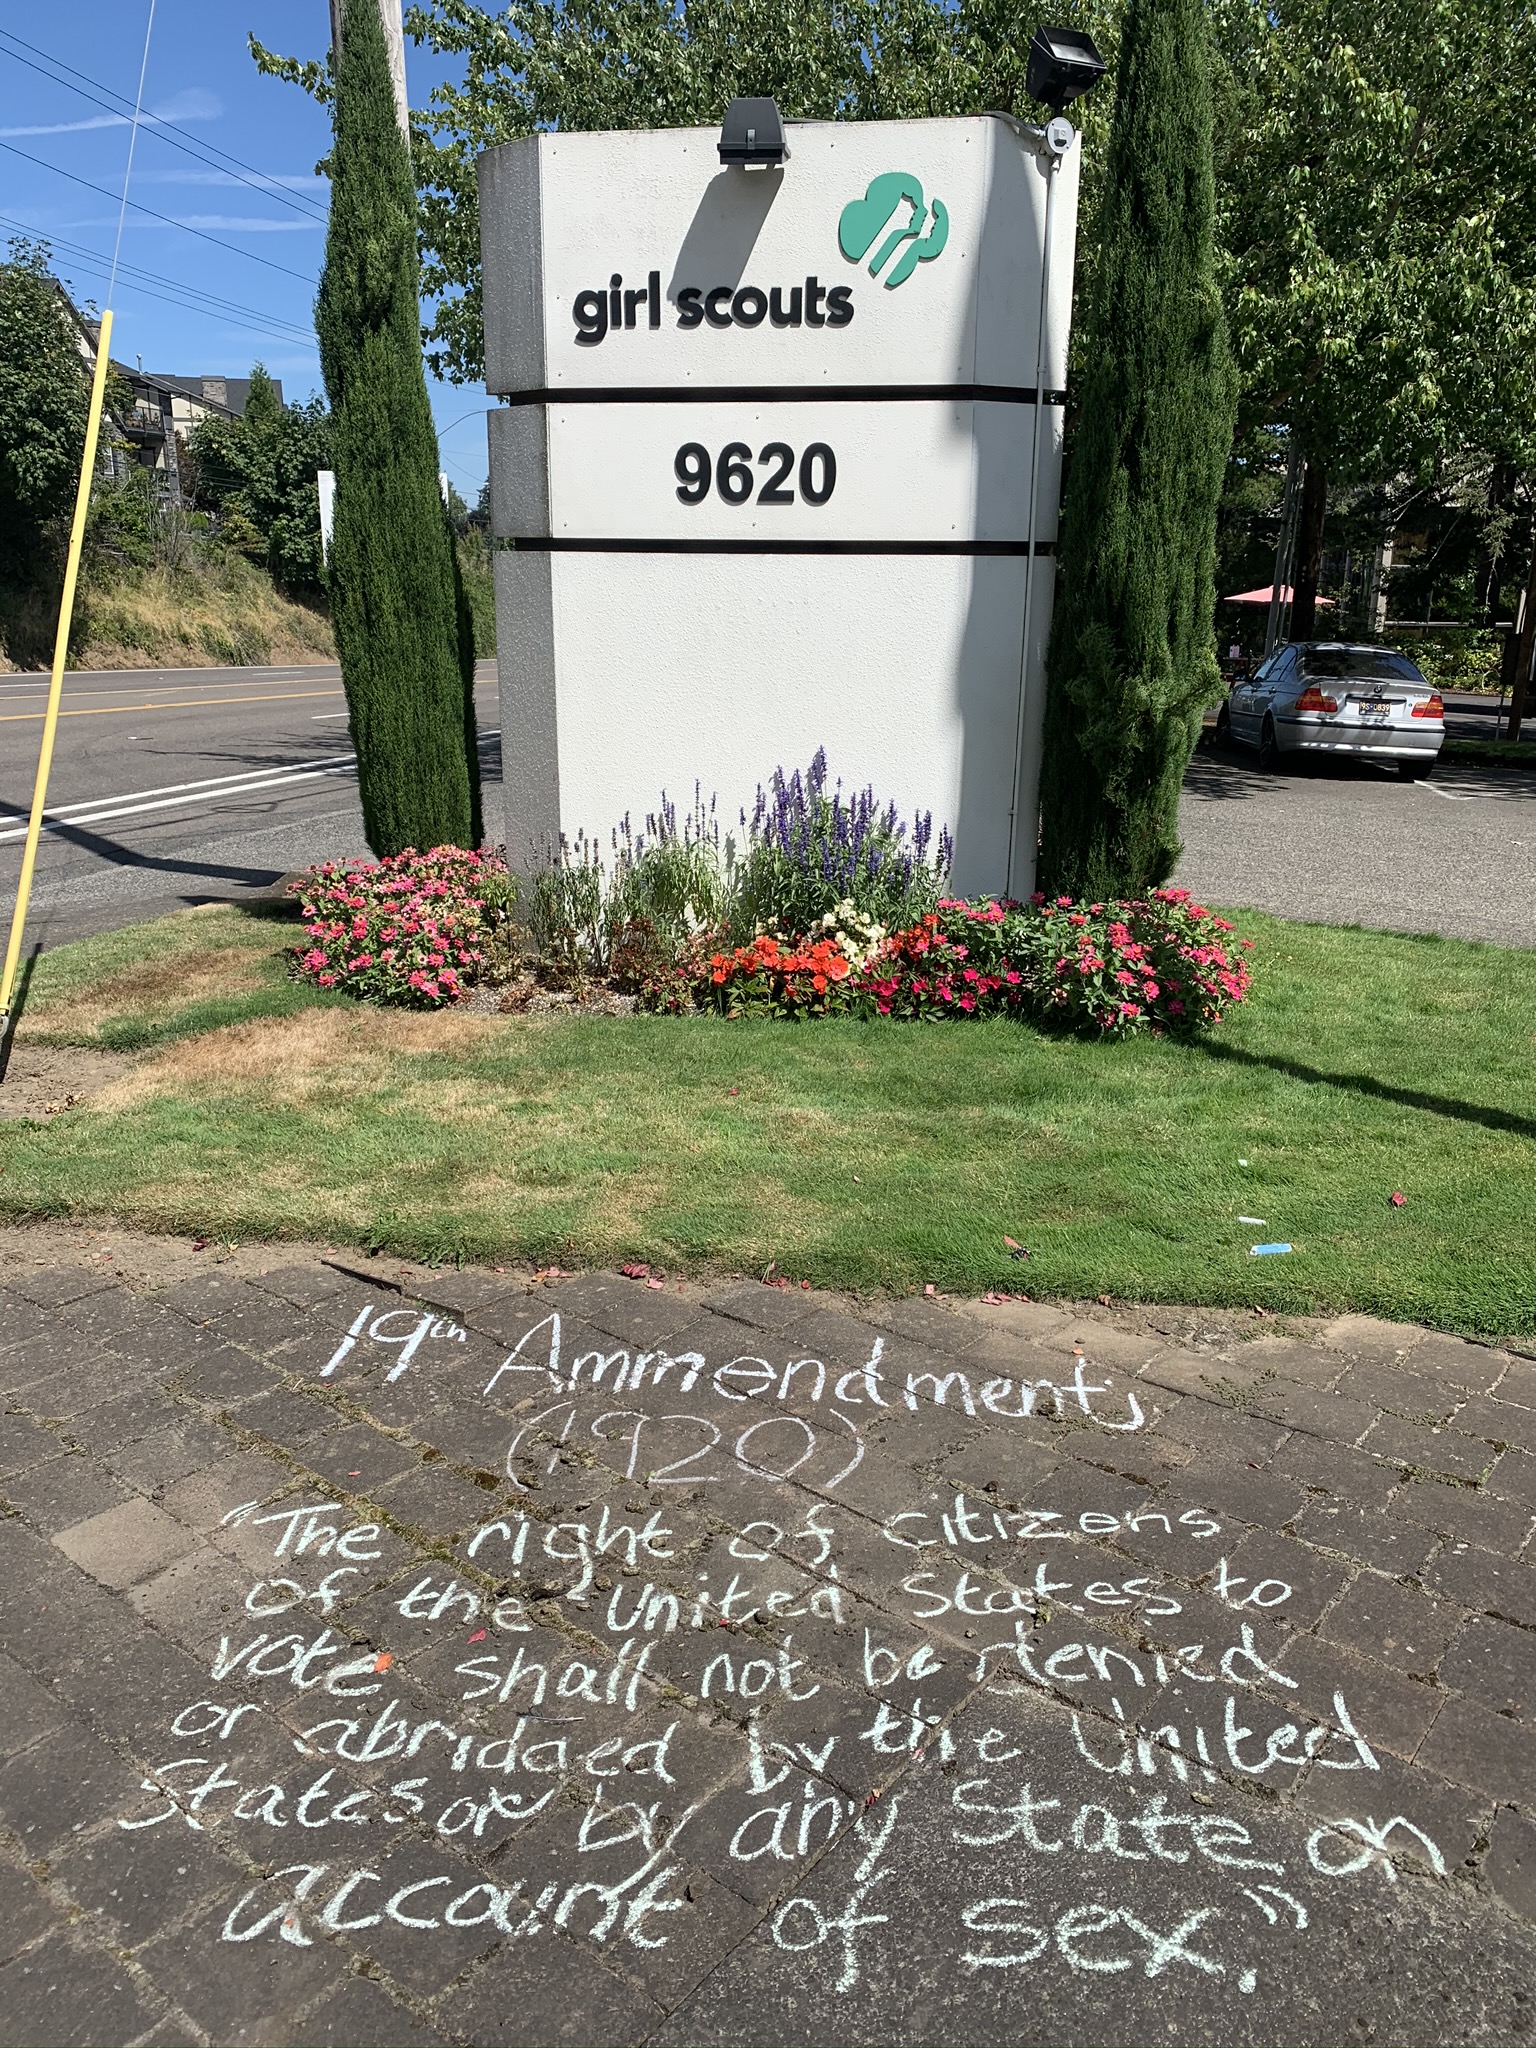 girl scouts
9620
9S-0839
19th Ammendment,
(1920)
"The right of citizens
of the United States to
vote shall not be denied
or abridged by the United
States or by any State on
account of sex."